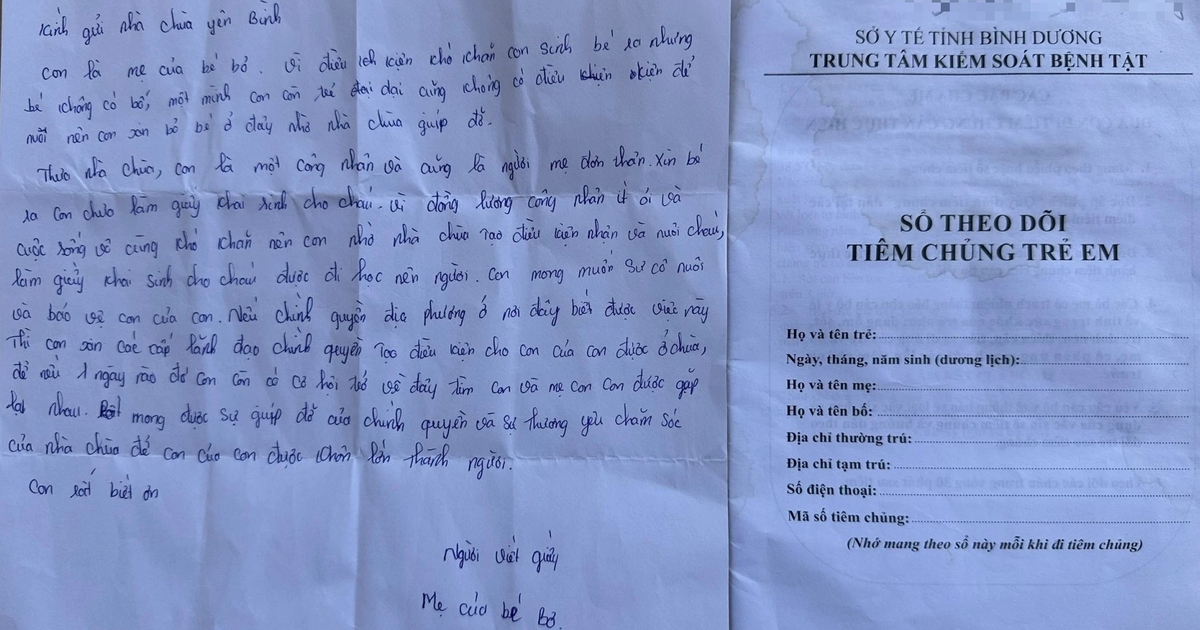 Kính gửi nhà chùa yên Bình
con là mẹ của bé bỏ. vì điều kiện khó khăn con sinh bé ra nhưng
bé không có bố, một mình con còn trẻ dại cũng không có điều kiện để
nuôi nên con xin bỏ bé ở đây nhờ nhà chùa giúp đỡ.
Thưa nhà chùa, con là một công nhân và cũng là người mẹ đơn thân. Xin bé
ra con chưa làm giấy khai sinh cho cháu. vì đồng lương công nhân ít ỏi và
cuộc sống vô cùng khó khăn nên con nhờ nhà chùa tạo điều kiện nhận và nuôi cháu,
làm giấy khai sinh cho cháu được đi học nên người. con mong muốn sư cô nuôi
và bảo vệ con của con. Nếu chính quyền địa phương ở nơi đây biết được việc này
Thì con xin các cấp lãnh đạo chính quyền tạo điều kiện cho con của con được ở chùa,
để nếu 1 ngày nào đó con còn có cơ hội trở về đây tìm con và mẹ con con được gặp
lại nhau. mong được sự giúp đỡ của chính quyền và sự thương yêu chăm sóc
của nhà chùa để con của con được khôn lớn thành người.
Con rất biết ơn
Người viết giấy
Mẹ của bé Bỏ.
SỞ Y TẾ TỈNH BÌNH DƯƠNG
TRUNG TÂM KIỂM SOÁT BỆNH TẬT
SỔ THEO DÕI
TIÊM CHỦNG TRẺ EM
Họ và tên trẻ:
Ngày, tháng, năm sinh (dương lịch):
Họ và tên mẹ:
Họ và tên bố:
Địa chỉ thường trú:
Địa chỉ tạm trú:
Số điện thoại:
Mã số tiêm chủng:
(Nhớ mang theo sổ này mỗi khi đi tiêm chủng)